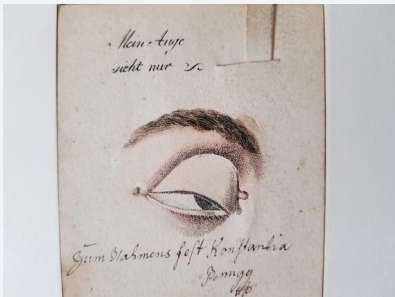 Mein Auge
sieht nur
Zum Nahmens fest Konstantia